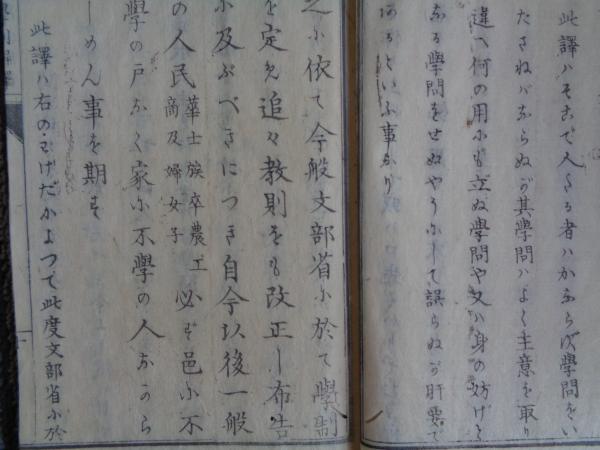 此譯ハそこで人たる者ハかならず學問をい
たさねバならぬが其學問ハよく主意を取り
違へ何の用にも立ぬ學問や又ハ身の妨げと
なる學問をせぬやうにして誤らぬが肝要で
あるといふ事なり
之に依て今般文部省に於て學制
を定め追々教則をも改正し布告
に及ぶべきにつき自今以後一般
の人民 華士族卒農工
商及婦女子 必ず邑に不
學の戸なく家に不學の人なから
しめん事を期す
此譯ハ右のわけだからよつて此度文部省に於